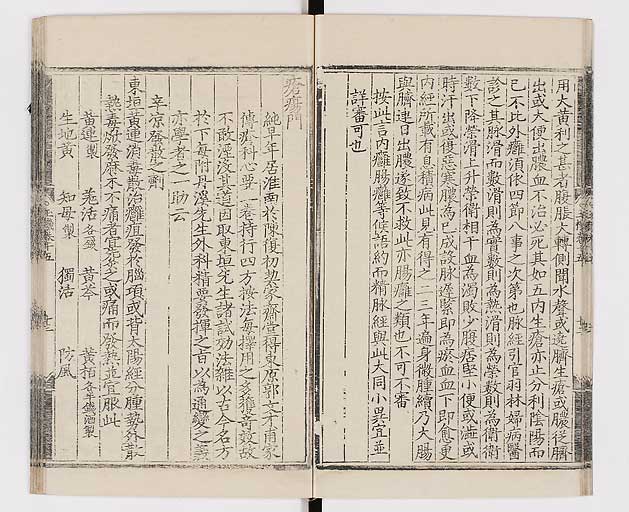 用大黄利之甚者腹脹大轉側聞水聲或遶臍生瘡或膿從臍
出或大便出膿血不治必死其如五內生瘡亦止分利陰陽而
已不比外癰須依四節八事之次第也脉經引官羽林婦病醫
診之其脉滑而數滑則為實數則為熱滑則為榮數則為衛衛
數下降榮滑上升榮衛相干血為濁敗少腹痞堅小便或澁或
時汗出或復惡寒膿為已成設脉遲緊即為瘀血血下即愈更
內經所載有息積病此見有得之二三年遍身微腫續乃大腸
與臍連日出膿遂致不救此亦腸癰之類也不可不審
按此言內癰腸癰等候語約而精脉經與此大同小異宜並
詳審可也
瘡瘍門
純早年居淮南於陳復初契家齋堂得東原郭文才甫家
傳瘡科心要一表持行四方按法每擇用之多獲奇效故
不敢湮沒其道因取東垣先生諸試効法雜以古今名方
於下每附丹溪先生外科精要發揮之言以為通變之義
亦學者之一助云
辛凉發散之劑
東垣黄連消毒散治癰疽發於腦項或背太陽經分腫勢外散
熱毒焮發麻木不痛者宜先灸之或痛而發熱並宜服此
黄連製 羗活各錢 黄芩 黄栢各半錢酒製
生地黄 知母製 獨活 防風